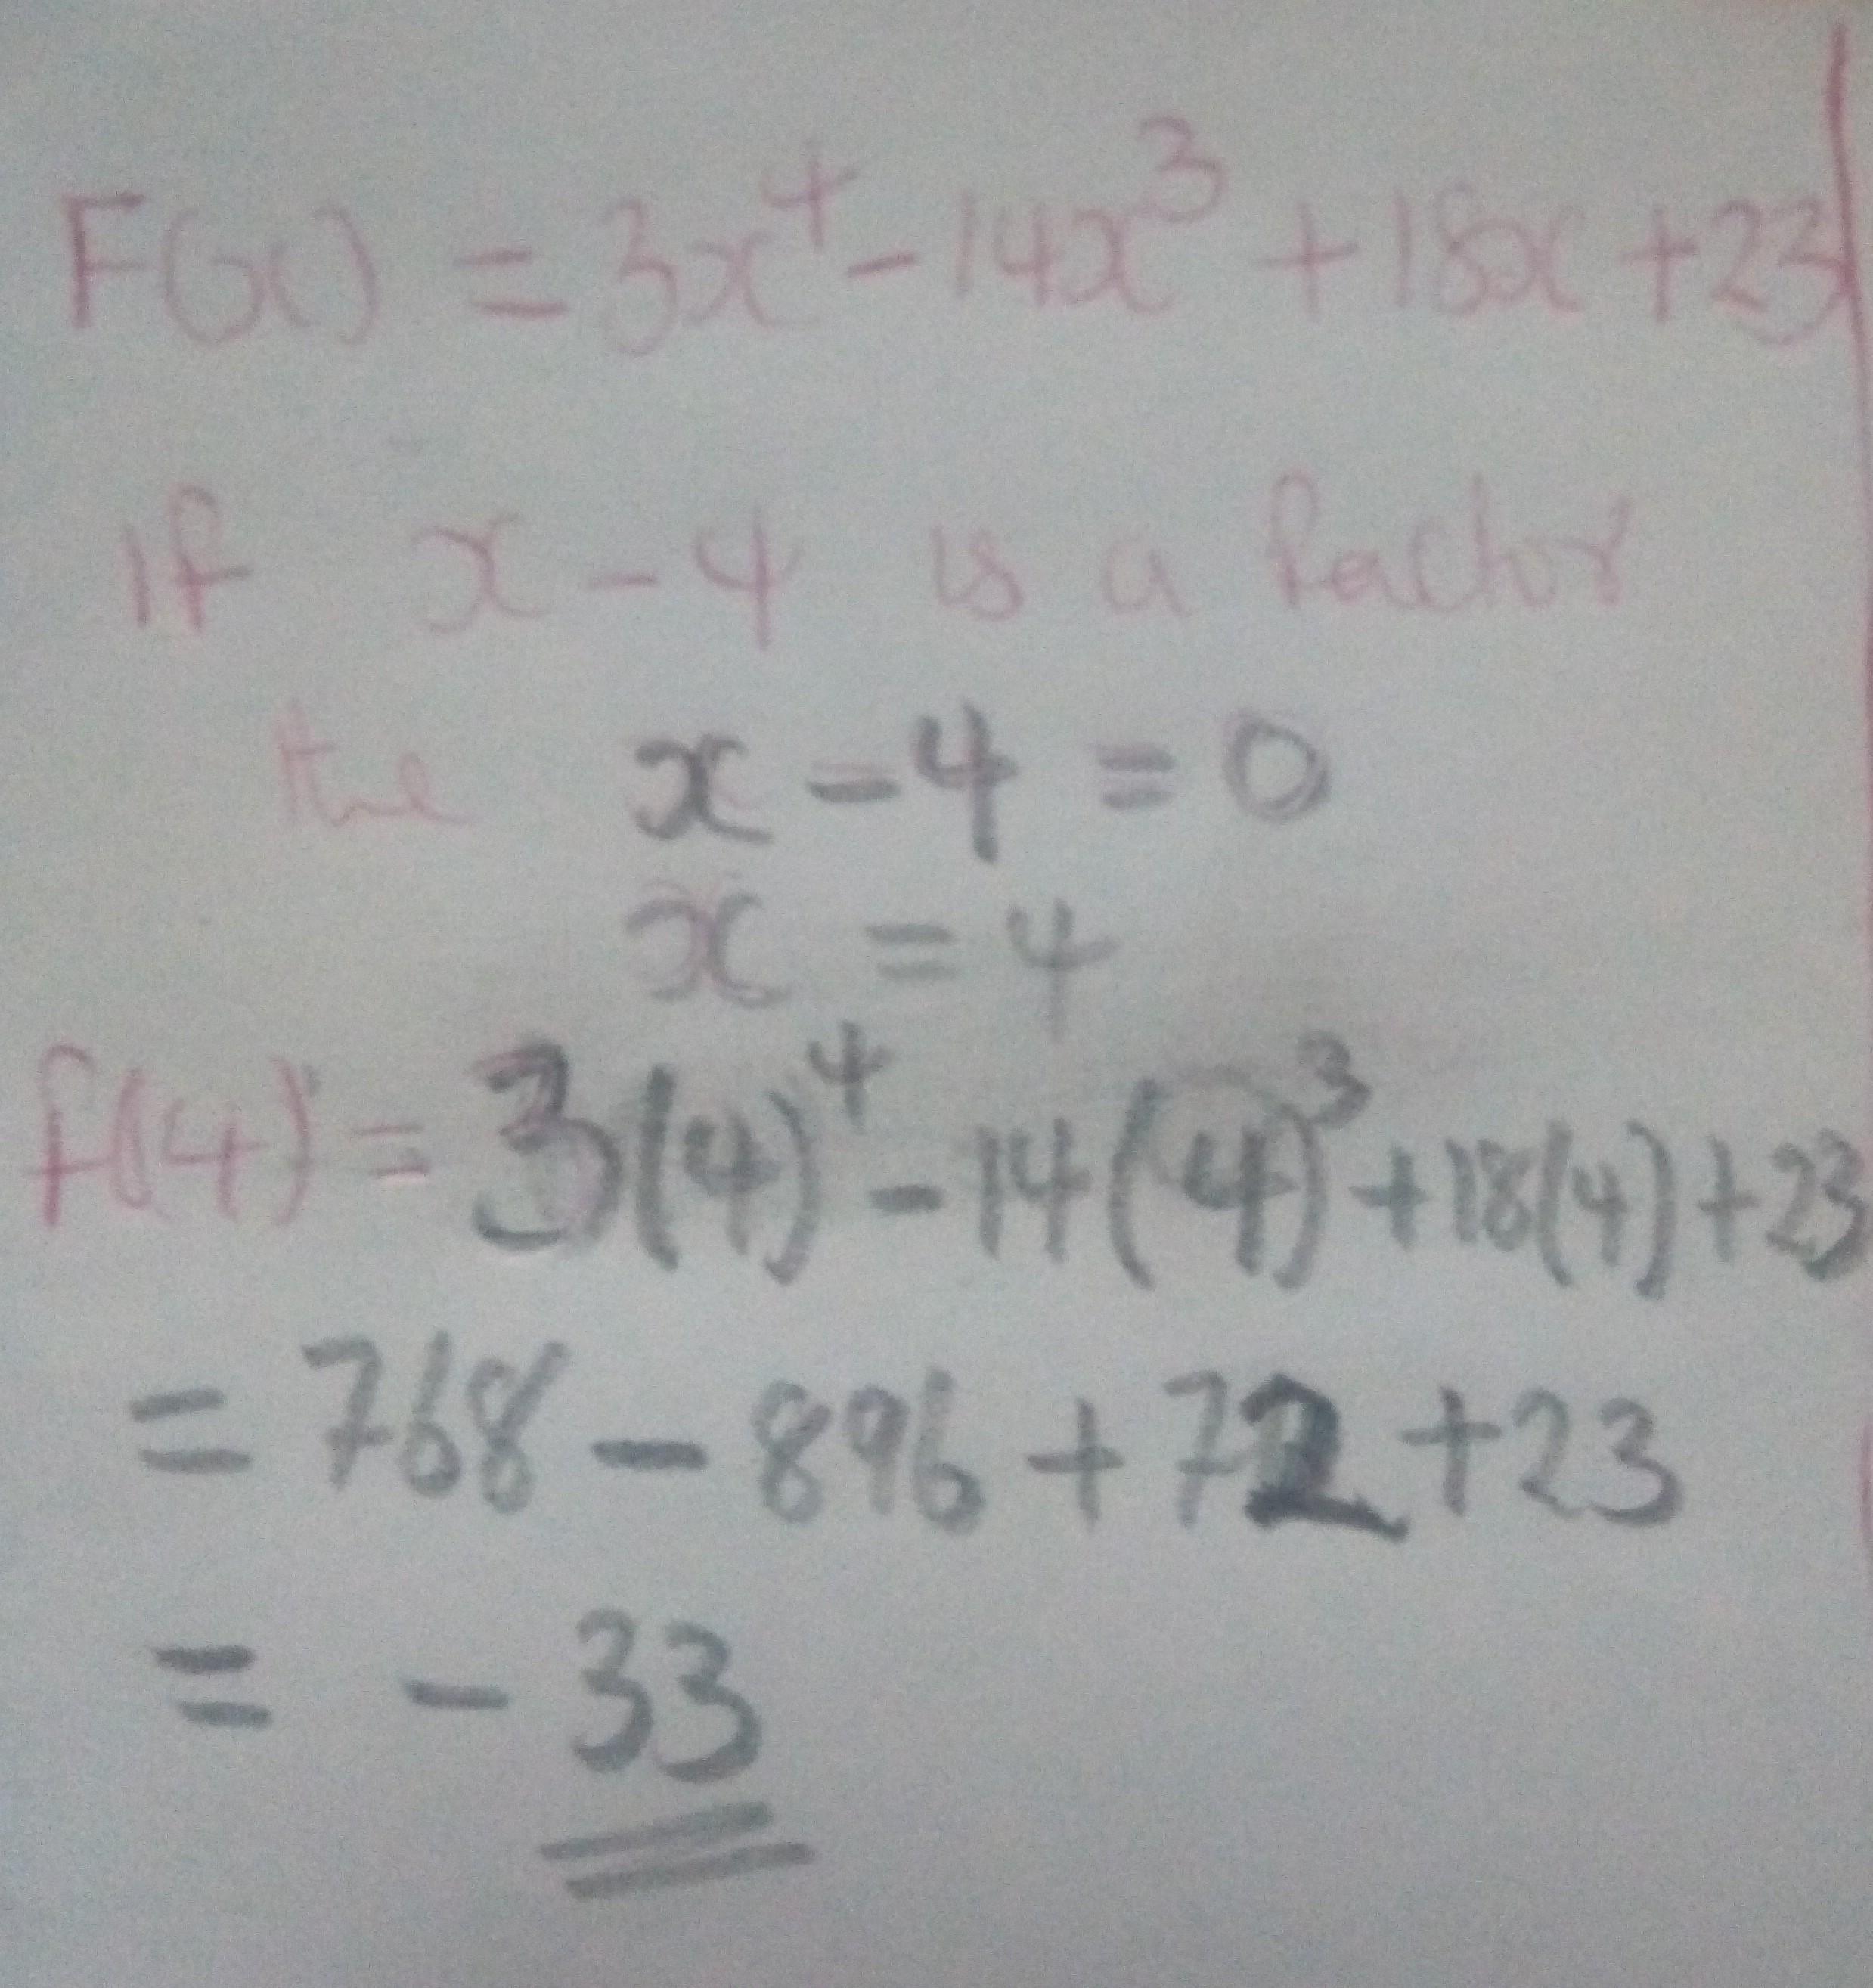 F(x) = 3x⁴ - 14x³ + 18x + 23
If x - 4 is a factor
the x - 4 = 0
x = 4
f(4) = 3(4)⁴ - 14(4)³ + 18(4) + 23
= 768 - 896 + 72 + 23
= - 33